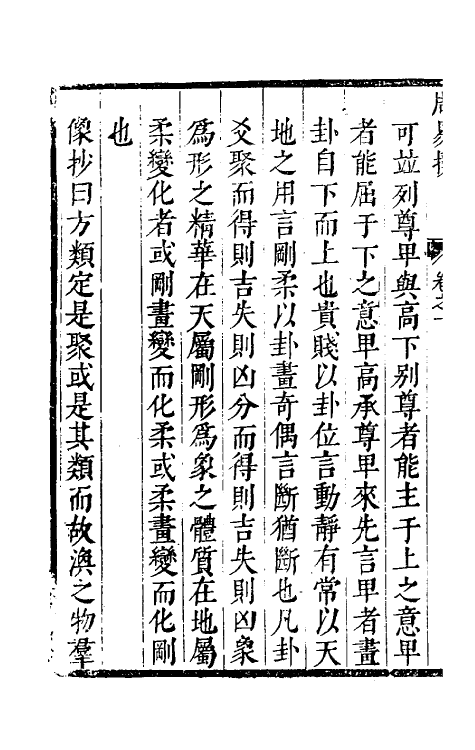 可並列尊卑與高下别尊者能主于上之意卑
者能屈于下之意卑高承尊卑來先言卑者畫
卦自下而上也貴賤以卦位言動靜有常以天
地之用言剛柔以卦畫奇偶言斷猶斷也凡卦
爻聚而得則吉失則凶分而得則吉失則凶象
爲形之精華在天屬剛形爲象之體質在地屬
柔變化者或剛畫變而化柔或柔畫變而化剛
也
像抄曰方類定是聚或是其類而故渙之物羣